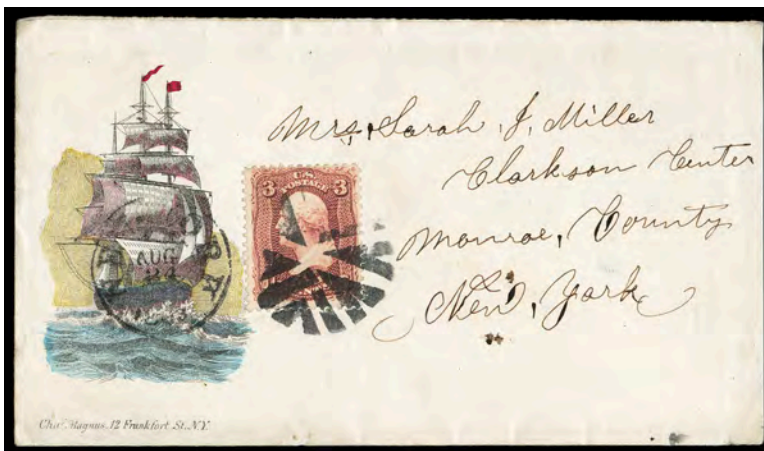 Mrs. Sarah, J, Miller
Clarkson Center
Monroe, County
New, York
U.S.
POSTAGE
3 3
CENTS
AUG
24
Chas. Magnus, 12 Frankfort St. N.Y.